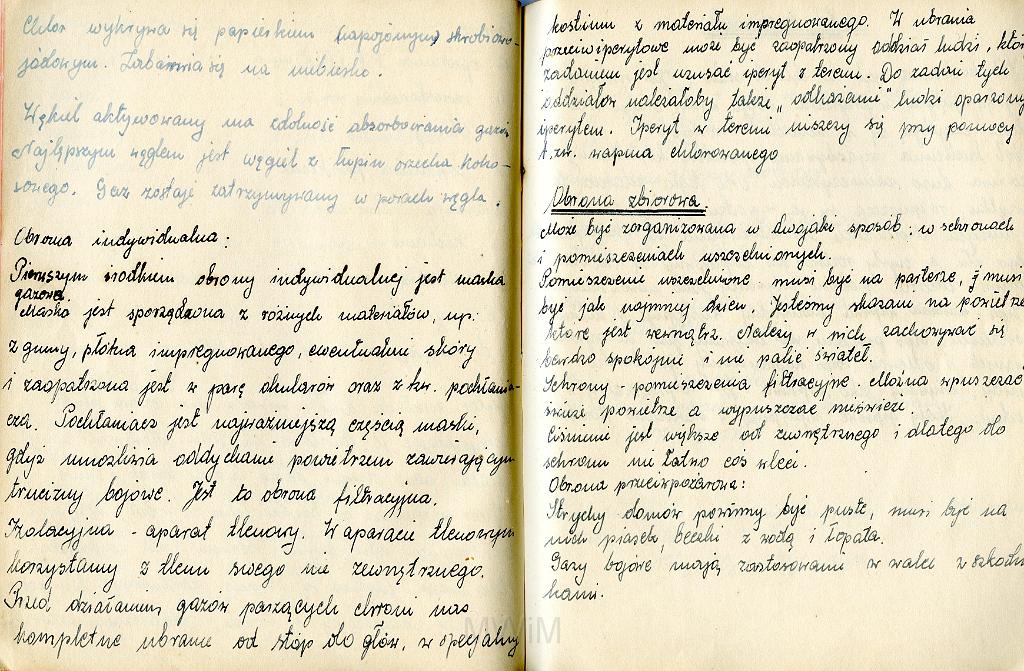 Chlor wykrywa się papierkiem (napojonym) skrobiowo-
jodowym. Zabarwia się na niebiesko.
Węgiel aktywowany ma zdolność absorbowania gazów
Najlepszym węglem jest węgiel z łupin orzecha koko-
sowego. Gaz zostaje zatrzymywany w porach węgla.
Obrona indywidualna:
Pierwszym środkiem obrony indywidualnej jest maska
gazowa.
Maska jest sporządzona z różnych materiałów, np:
z gumy, płótna impregnowanego, ewentualnie skóry
i zaopatrzona jest w parę okularów oraz z tzw. pochłania-
cza. Pochłaniacz jest najważniejszą częścią maski,
gdyż umożliwia oddychanie powietrzem zawierającym
trucizny bojowe. Jest to obrona filtracyjna.
Izolacyjna - aparat tlenowy. W aparacie tlenowym
korzystamy z tlenu swego nie zewnętrznego.
Przed działaniem gazów parzących chroni nas
kompletne ubranie od stóp do głów, w specjalny
kostium z materiału impregnowanego. W ubrania
przeciwiperytowe może być zaopatrzony oddział ludzi, któr
zadaniem jest usuwać iperyt z terenu. Do zadań tych
oddziałów należałoby także „odkażanie" ludzi oparzony
iperytem. Iperyt w terenie niszczy się przy pomocy
t.zw. wapna chlorowanego
Obrona zbiorowa.
Może być zorganizowana w dwojaki sposób: w schronach
i pomieszczeniach uszczelnionych.
Pomieszczenie uszczelnione musi być na parterze, i musi
być jak najmniej drzwi. Jesteśmy skazani na powietrze
które jest wewnątrz. Należy w nich zachowywać się
bardzo spokojnie i nie palić świateł.
Schrony - pomieszczenia filtracyjne. Można wpuszczać
świeże powietrze a wypuszczać nieświeże.
Ciśnienie jest większe od zewnętrznego i dlatego do
schronu nie łatwo coś wleci.
Obrona przeciwpożarowa:
Strychy domów powinny być puste, musi być na
nich piasek, beczki z wodą i łopata.
Gazy bojowe mają zastosowanie w walce z szkodni
kami.
MWiM